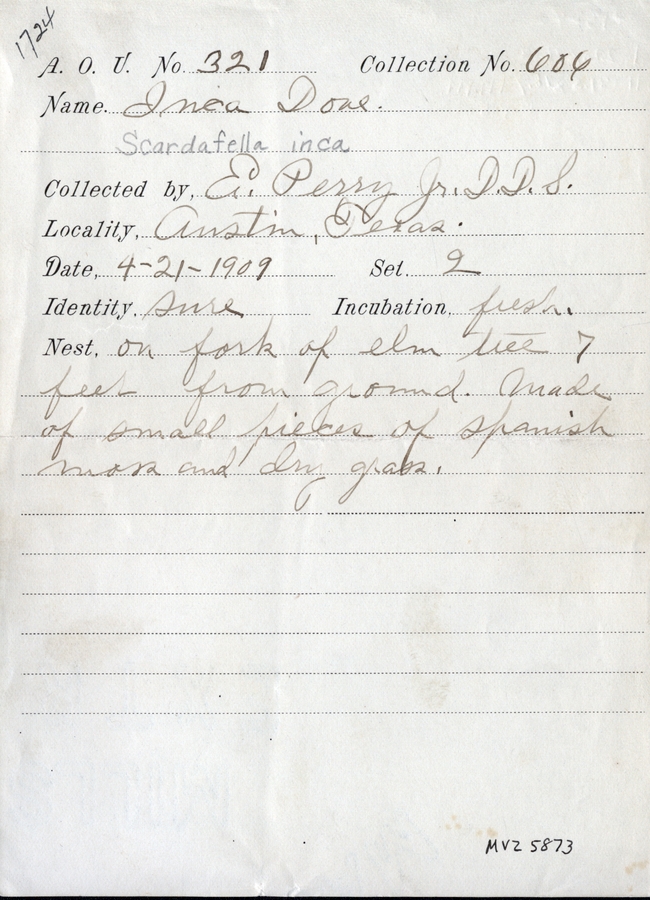 1724
A. O. U. No. 321 Collection No. 606
Name. Inca Dove.
Scardafella inca
Collected by, E. Perry Jr. D.D.S.
Locality, Austin, Texas.
Date, 4-21-1909 Set. 2
Identity, sure Incubation, fresh.
Nest, on fork of elm tree 7
feet from ground. Made
of small pieces of spanish
moss and dry grass.
MVZ 5873